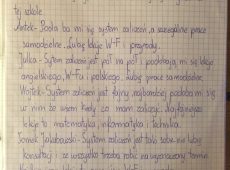 tej szkole.
Antek- Podoba mi się system zaliczeń, a szczególnie prace
samodzielne. Lubię lekcje W-F i przyrody.
Julka- System zaliczeń jest pół na pół, podobają mi się lekcje
angielskiego, W-Fu i polskiego. Lubię prace samodzielne.
Wojtek- System zaliczeń jest fajny najbardziej podoba mi się
w nim że wiem kiedy co mam zaliczyć. Najfajniejsze
lekcje to matematyka, informatyka i technika.
Tomek Jakubowski- System zaliczeń jest taki sobie- nie lubię
konsultacji i że wszystko trzeba robić na wyznaczony termin.